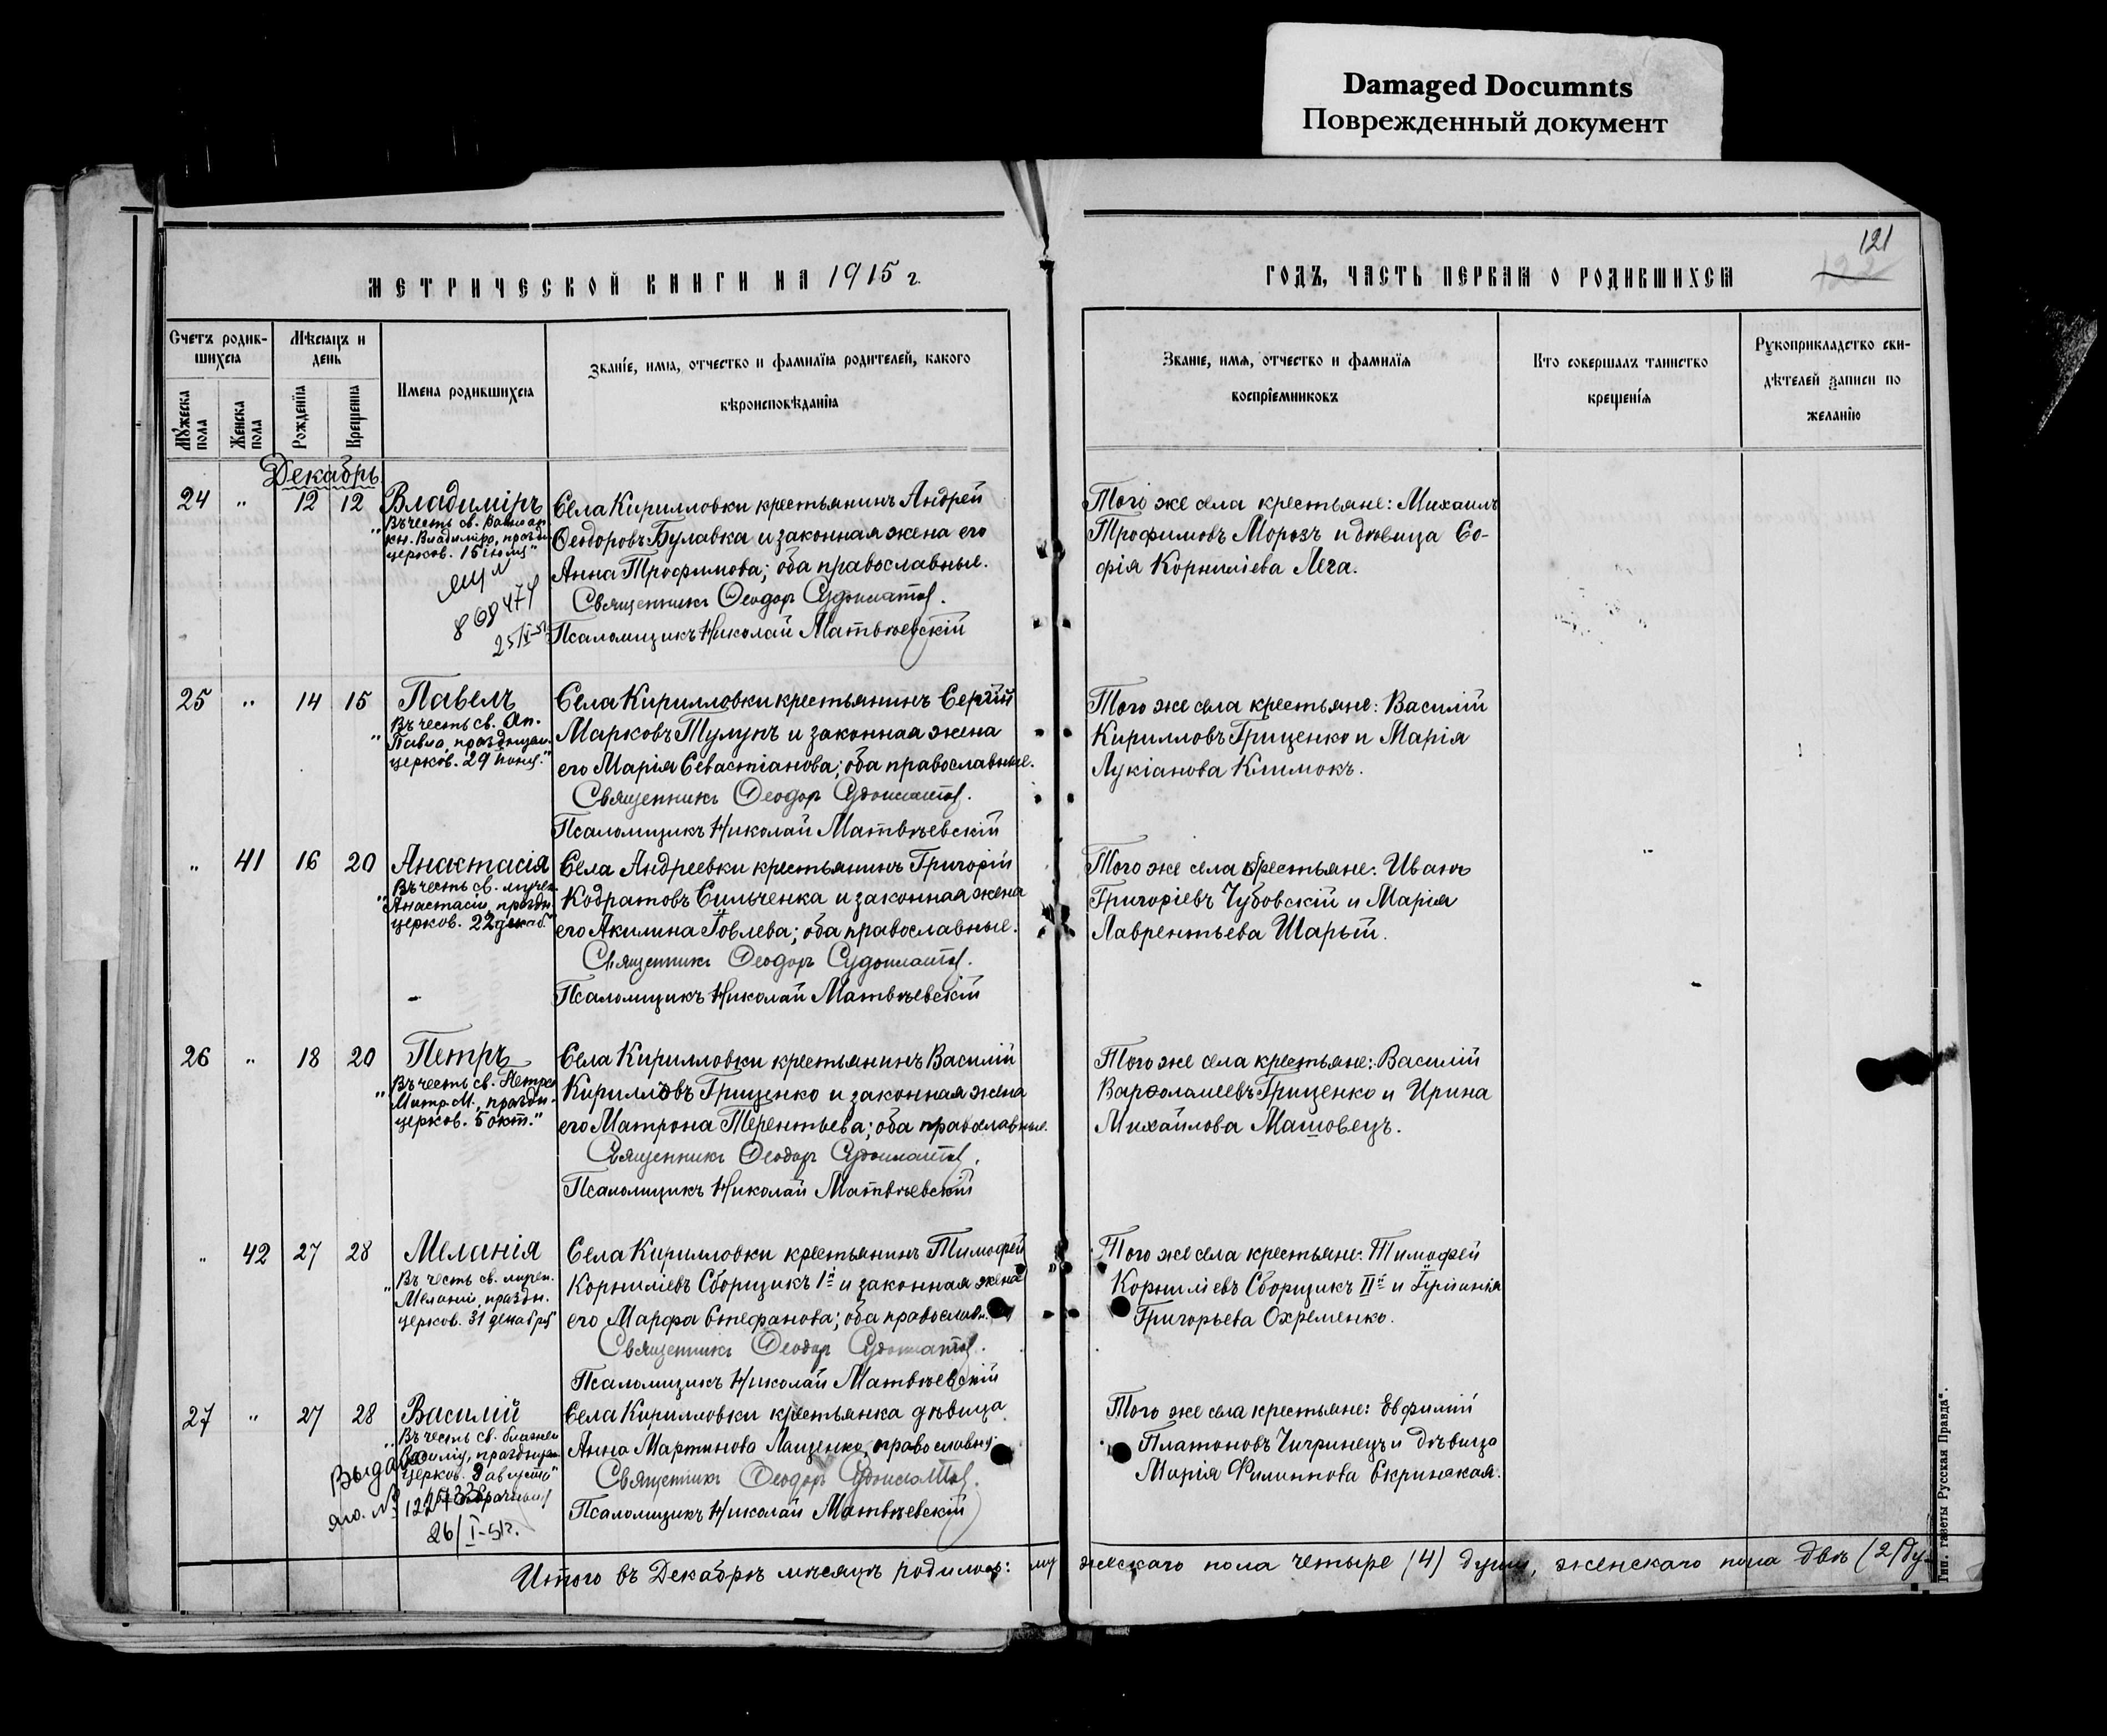 Damaged Documnts
Поврежденный документ
121
122
МЕТРИЧЕСКОЙ КНИГИ НА 1915 г.
ГОДЪ, ЧАСТЬ ПЕРВАЯ О РОДИВШИХСЯ
Счетъ родив-
шихся
Мѣсяцъ и
день
Имена родившихся
Званіе, имя, отчество и фамилія родителей, какого
вѣроисповѣданія
Мужеска пола
Женска пола
Рожденія
Крещенія
Званіе, имя, отчество и фамилія
воспріемниковъ
Кто совершалъ таинство
крещенія
Рукоприкладство сви-
дѣтелей записи по
желанію
Декабрь
24 " 12 12 Владиміръ
"Въ честь св. равноап.
кн. Владиміра, праздн.
церков. 15 іюля"
868474
25/V-51
Села Кирилловки крестьянинъ Андрей
Ѳеодоровъ Булавка и законная жена его
Анна Трофимова; оба православные.
Священникъ Ѳеодоръ
Псаломщикъ Николай Матвѣевскій
Того же села крестьяне: Михаилъ
Трофимовъ Морозъ и дѣвица Со-
фія Корниліева Лега.
25 " 14 15 Павелъ
"Въ честь св. Ап.
Павла, празднуем.
церков. 29 іюня."
Села Кирилловки крестьянинъ Сергій
Марковъ Тулупъ и законная жена
его Марія Севастіанова; оба православные.
Священникъ Ѳеодоръ
Псаломщикъ Николай Матвѣевскій
Того же села крестьяне: Василій
Кирилловъ Гриценко и Марія
Лукіанова Климокъ.
" 41 16 20 Анастасія
"Въ честь св. мучен.
Анастасіи, праздн.
церков. 22 декаб."
Села Андреевки крестьянинъ Григорій
Кодратовъ Сильченка и законная жена
его Акилина Іовлева; оба православные.
Священникъ Ѳеодоръ
Псаломщикъ Николай Матвѣевскій
Того же села крестьяне: Иванъ
Григоріевъ Чубовскій и Марія
Лаврентьева Шарый.
26 " 18 20 Петръ
"Въ честь св. Петра
Митр. М., праздн.
церков. 5 окт."
Села Кирилловки крестьянинъ Василій
Кирилловъ Гриценко и законная жена
его Матрона Терентьева; оба православные.
Священникъ Ѳеодоръ
Псаломщикъ Николай Матвѣевскій
Того же села крестьяне: Василій
Варѳоломеевъ Гриценко и Ирина
Михайлова Машовецъ.
" 42 27 28 Меланія
"Въ честь св.
Меланіи, праздн.
церков. 31 декабря"
Села Кирилловки крестьянинъ Тимофей
Корниліевъ Сборщикъ Iй и законная жена
его Марфа Стефанова; оба православн.
Священникъ Ѳеодоръ
Псаломщикъ Николай Матвѣевскій
Того же села крестьяне: Тимофей
Корниліевъ Сборщикъ IIй и Іуліанія
Григорьева Охременко.
27 " 27 28 Василій
"Въ честь св.
Василія, празднуем.
церков. 9 августа"
26/I-51г.
Села Кирилловки крестьянка дѣвица
Анна Мартинова Лащенко, православн.
Священникъ Ѳеодоръ
Псаломщикъ Николай Матвѣевскій
Того же села крестьяне: Евфимій
Платоновъ Чигринецъ и дѣвица
Марія Филиппова Скринская.
Итого въ Декабрѣ мѣсяцѣ родилось: мужескаго пола четыре (4) души, женскаго пола двѣ (2) ду-
Тип. газеты "Русская Правда".